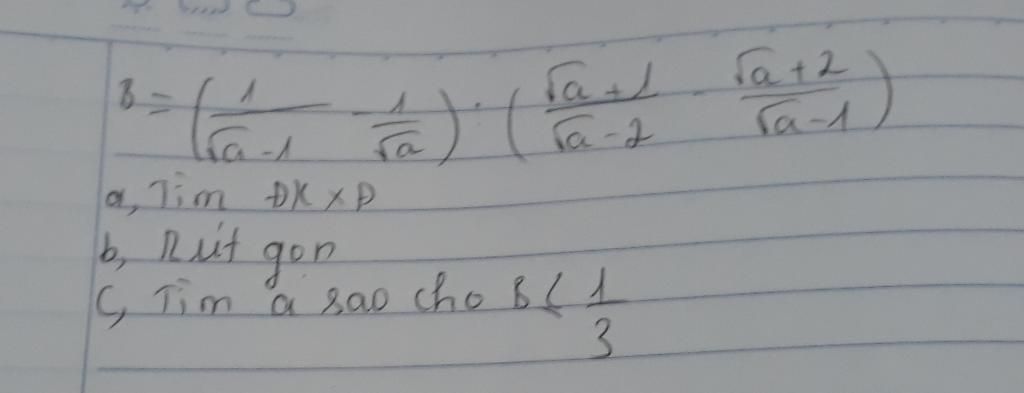 B = (1/(√a - 1) - 1/√a) : ((√a + 1)/(√a - 2) - (√a + 2)/(√a - 1))
a, Tìm ĐKXĐ
b, Rút gọn
c, Tìm a sao cho B < 1/3